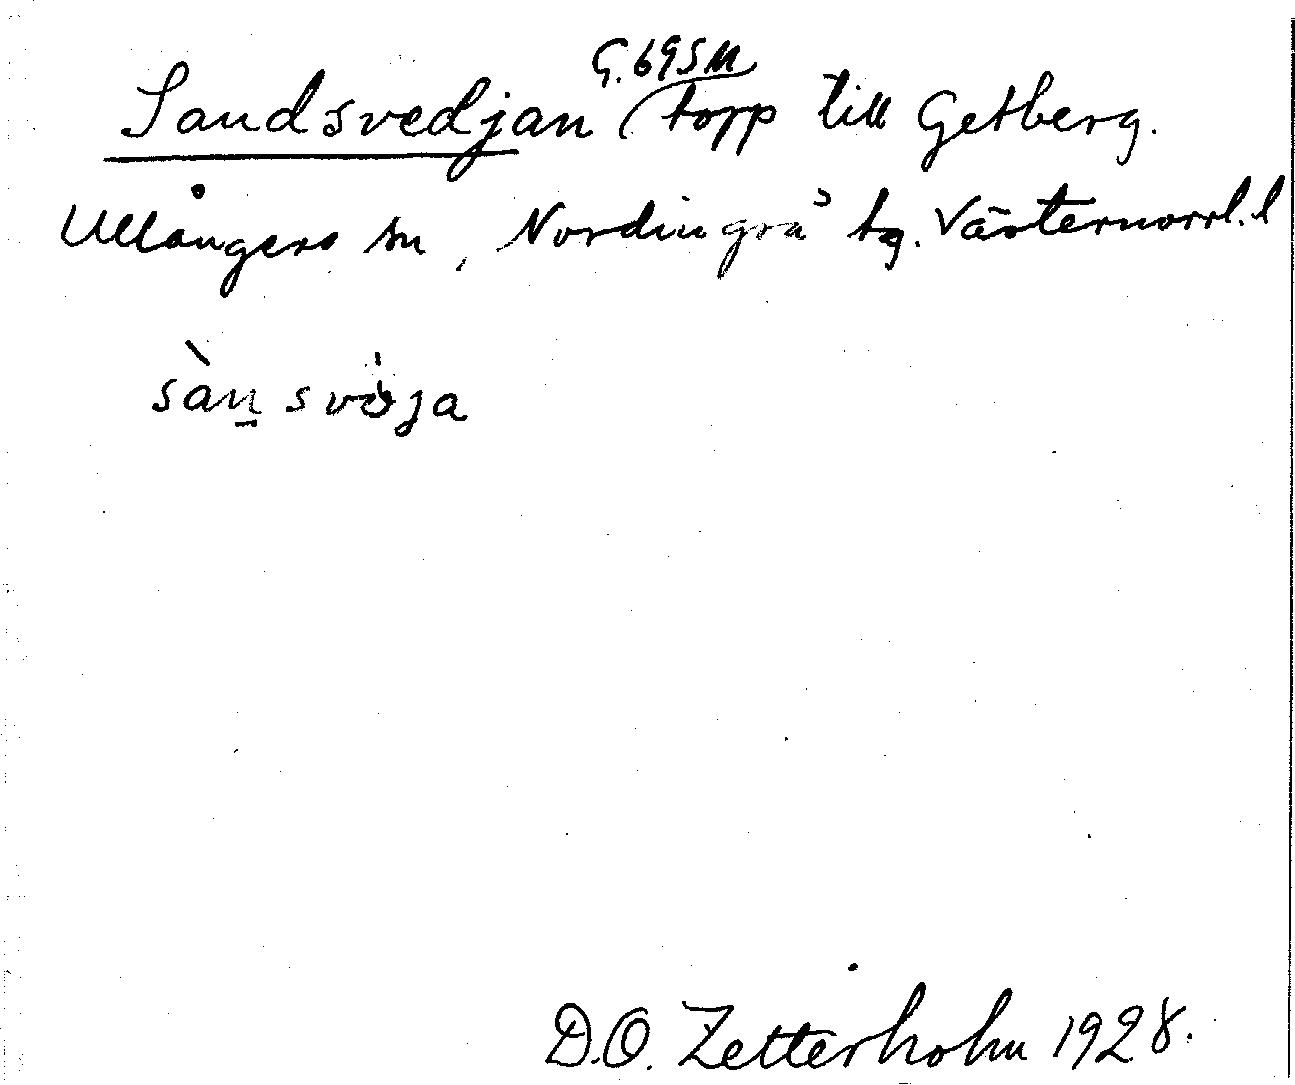 G. 69SM
Sandsvedjan (torp till Getberg.
Ullångers sn, Nordingrå tg. Västernorrl. l
sàn̲ svö̀ja
D.O. Zetterholm 1928.